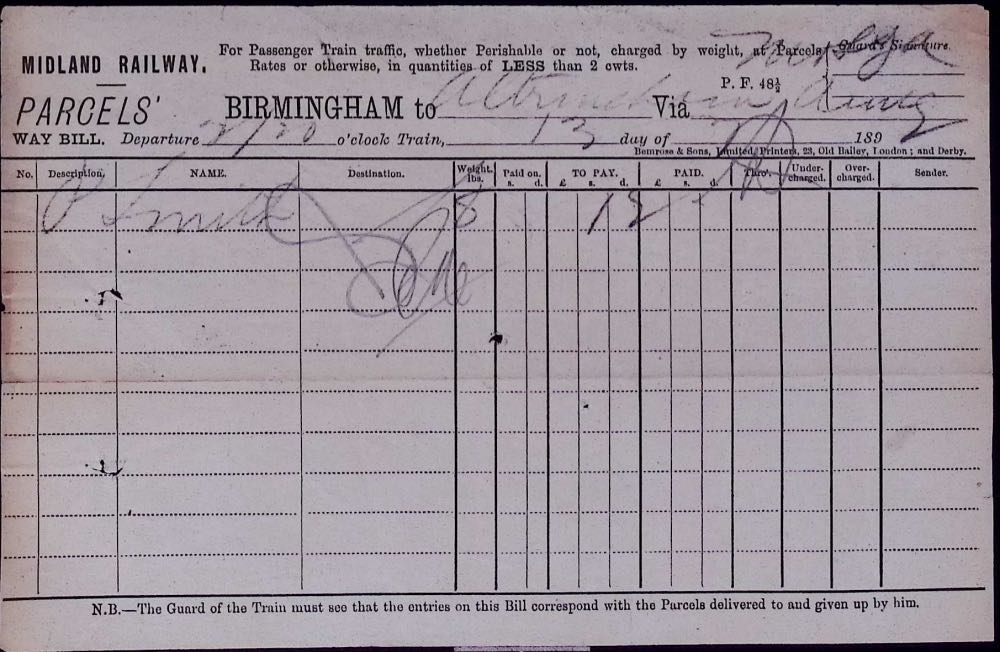 For Passenger Train traffic, whether Perishable or not, charged by weight, at Parcels' Guard's Signature.
MIDLAND RAILWAY. Rates or otherwise, in quantities of LESS than 2 cwts.
P. F. 48½
PARCELS' BIRMINGHAM to Altrincham Via
WAY BILL. Departure 2/20 o'clock Train, 13 day of 189 2
Bemrose & Sons, Limited, Printers, 23, Old Bailey, London; and Derby.
No. Description. NAME. Destination. Weight. lbs. Paid on. s. d. TO PAY. £ s. d. PAID. £ s. d. Thro'. Under-charged. Over-charged. Sender.
P Smith 8 1/2
N.B.—The Guard of the Train must see that the entries on this Bill correspond with the Parcels delivered to and given up by him.